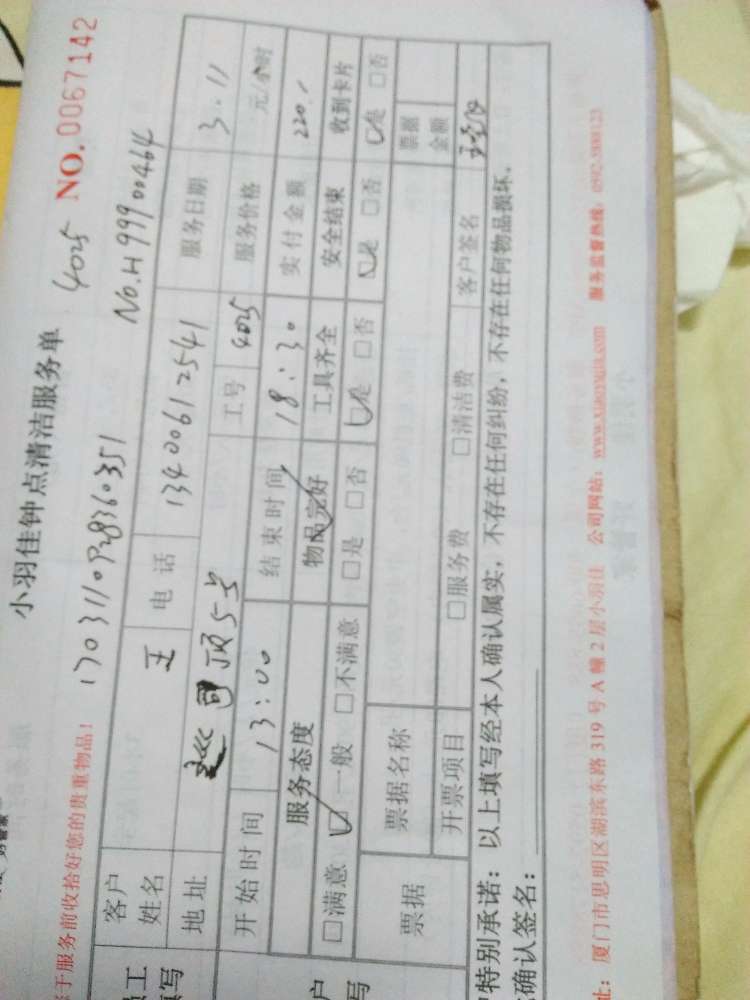 小羽佳钟点清洁服务单 4025 NO.0067142
于服务前收拾好您的贵重物品! No.H99900464
客户姓名 王 电话 13400612541 服务日期 3.11
地址 工号 4025 服务价格 元/小时
开始时间 13:00 结束时间 18:30 实付金额 220.
服务态度 物品完好 工具齐全 安全结束 收到卡片
□满意 □一般 □不满意 □是 □否 □是 □否 □是 □否 □是 □否
票据 票据名称 票据金额
开票项目 □服务费 □清洁费 客户签名
特别承诺:以上填写经本人确认属实,不存在任何纠纷,不存在任何物品损坏。
确认签名:
址:厦门市思明区湖滨东路319号A幢2层小羽佳 公司网站:www.xiaoyujia.com 服务监督热线:0592-5888123